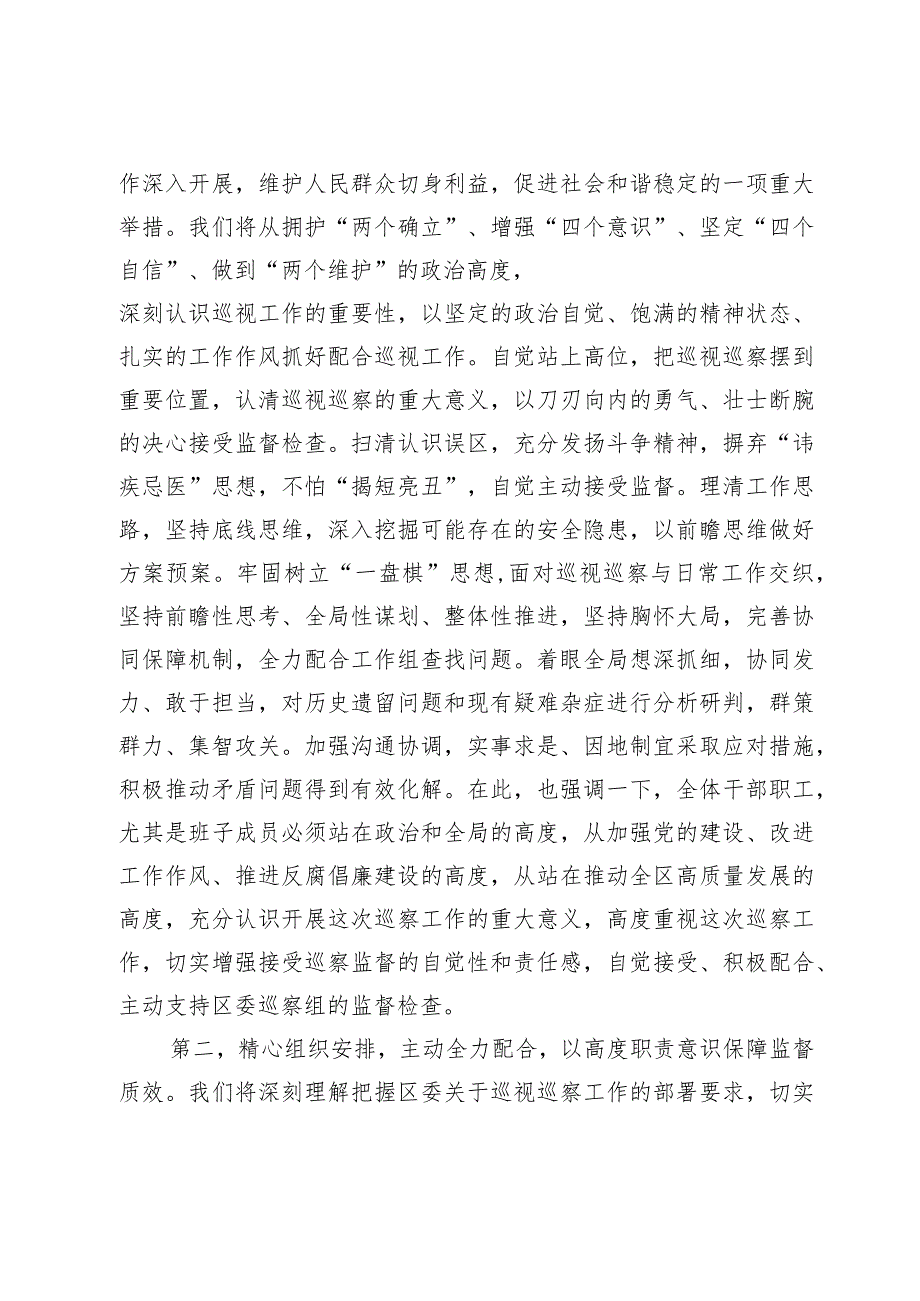 作深入开展，维护人民群众切身利益，促进社会和谐稳定的一项重大
举措。我们将从拥护“两个确立”、增强“四个意识”、坚定“四个
自信”、做到“两个维护”的政治高度，
深刻认识巡视工作的重要性，以坚定的政治自觉、饱满的精神状态、
扎实的工作作风抓好配合巡视工作。自觉站上高位，把巡视巡察摆到
重要位置，认清巡视巡察的重大意义，以刀刃向内的勇气、壮士断腕
的决心接受监督检查。扫清认识误区，充分发扬斗争精神，摒弃“讳
疾忌医”思想，不怕“揭短亮丑”，自觉主动接受监督。理清工作思
路，坚持底线思维，深入挖掘可能存在的安全隐患，以前瞻思维做好
方案预案。牢固树立“一盘棋”思想,面对巡视巡察与日常工作交织，
坚持前瞻性思考、全局性谋划、整体性推进，坚持胸怀大局，完善协
同保障机制，全力配合工作组查找问题。着眼全局想深抓细，协同发
力、敢于担当，对历史遗留问题和现有疑难杂症进行分析研判，群策
群力、集智攻关。加强沟通协调，实事求是、因地制宜采取应对措施，
积极推动矛盾问题得到有效化解。在此，也强调一下，全体干部职工，
尤其是班子成员必须站在政治和全局的高度，从加强党的建设、改进
工作作风、推进反腐倡廉建设的高度，从站在推动全区高质量发展的
高度，充分认识开展这次巡察工作的重大意义，高度重视这次巡察工
作，切实增强接受巡察监督的自觉性和责任感，自觉接受、积极配合、
主动支持区委巡察组的监督检查。
第二，精心组织安排，主动全力配合，以高度职责意识保障监督
质效。我们将深刻理解把握区委关于巡视巡察工作的部署要求，切实